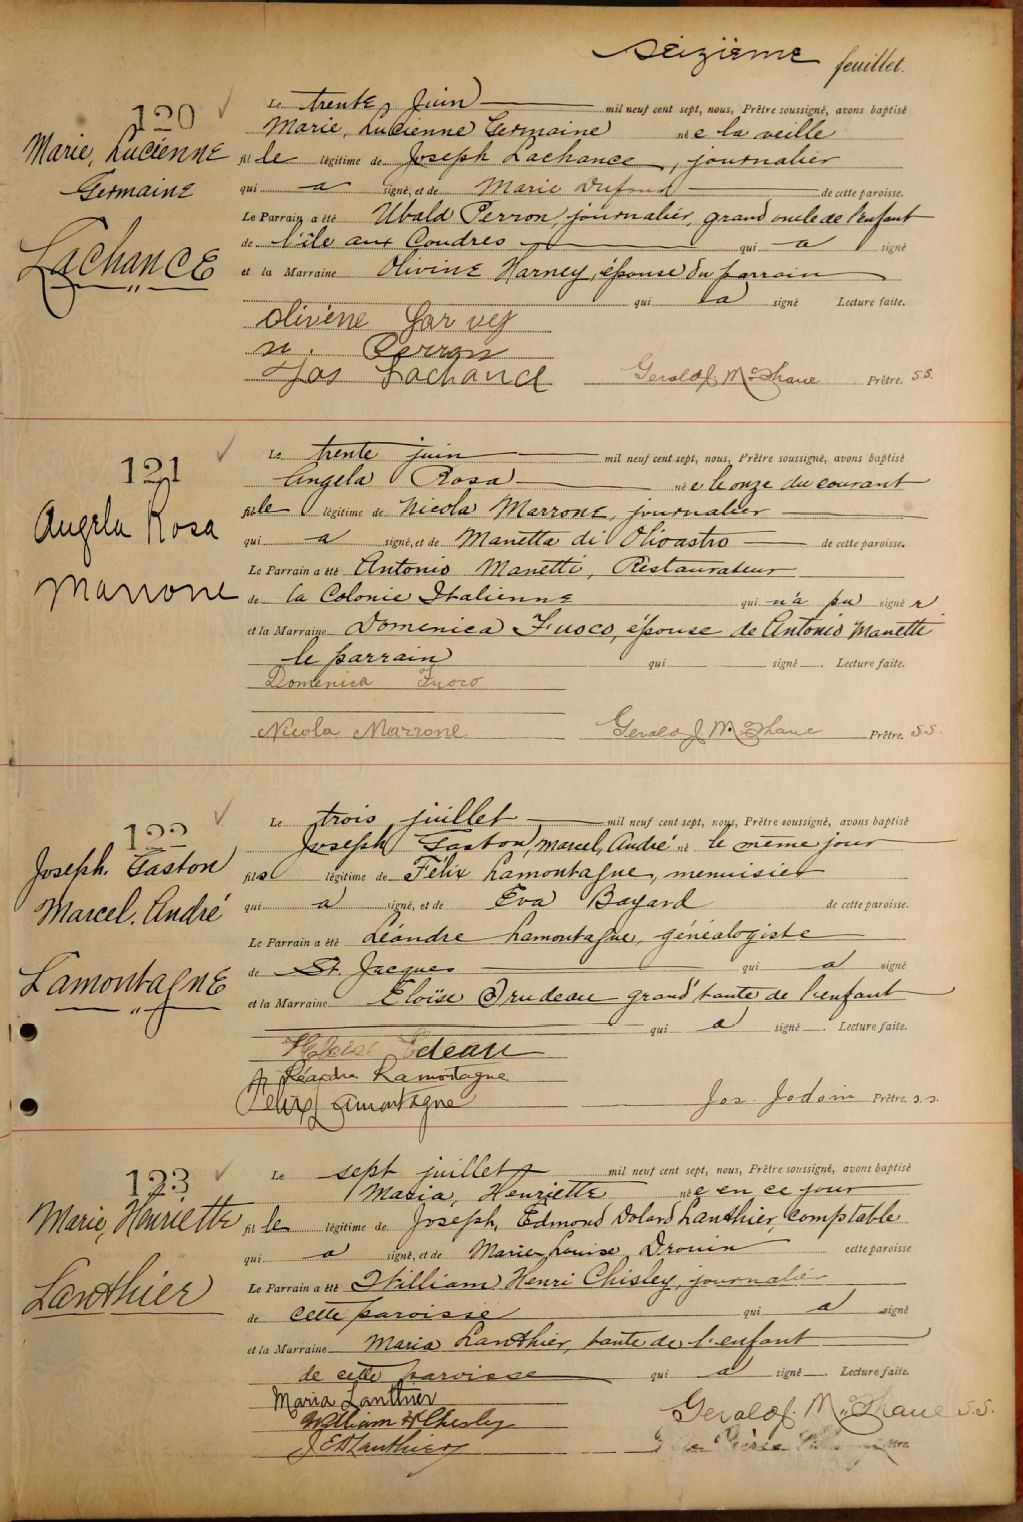 seizième feuillet.
120
Marie, Lucienne
Germaine
Lachance
Le trente, Juin mil neuf cent sept, nous, Prêtre soussigné, avons baptisé
Marie, Lucienne Germaine née la veille
fille légitime de Joseph Lachance, journalier
qui a signé, et de Marie Dufour de cette paroisse.
Le Parrain a été Ubald Perron, journalier, grand oncle de l'enfant
de l'île aux Coudres qui a signé
et la Marraine Olivine Harney, épouse du parrain
qui a signé Lecture faite.
Olivène Garvey
Perron
Jos Lachance Gerald J. McShane Prêtre. S.S.
121
Angela Rosa
Marrone
Le trente juin mil neuf cent sept, nous, Prêtre soussigné, avons baptisé
Angela Rosa née le onze du courant
fille légitime de Nicola Marrone, journalier
qui a signé, et de Manetta di Olioastro de cette paroisse.
Le Parrain a été Antonio Manetti, Restaurateur
de la Colonie Italienne qui n'a pu signer
et la Marraine Domenica Fuoco, épouse de Antonio Manetti
le parrain qui signé Lecture faite.
Domenica Fuoco
Nicola Marrone Gerald J. McShane Prêtre. S.S.
122
Joseph. Gaston
Marcel. André
Lamontagne
Le trois, juillet mil neuf cent sept, nous, Prêtre soussigné, avons baptisé
Joseph Gaston, Marcel, André né le même jour
fils légitime de Félix Lamontagne, menuisier
qui a signé, et de Eva Bayard de cette paroisse.
Le Parrain a été Léandre Lamontagne, généalogiste
de St. Jacques qui a signé
et la Marraine Eloïse Trudeau grand'tante de l'enfant
qui a signé. Lecture faite.
Léandre Lamontagne
Felix Lamontagne Jos. Jodoin Prêtre. s.s.
123
Marie, Henriette
Lanthier
Le sept juillet mil neuf cent sept, nous, Prêtre soussigné, avons baptisé
Maria, Henriette née en ce jour
fille légitime de Joseph, Edmond Dolard Lanthier, comptable
qui a signé, et de Marie Louise Drouin cette paroisse
Le Parrain a été William Henri Chisley, journalier
de cette paroisse qui a signé
et la Marraine Maria Lanthier, tante de l'enfant
de cette paroisse qui a signé Lecture faite.
Maria Lanthier
William H Chisley Gerald J. McShane S.S.
J E D Lanthier